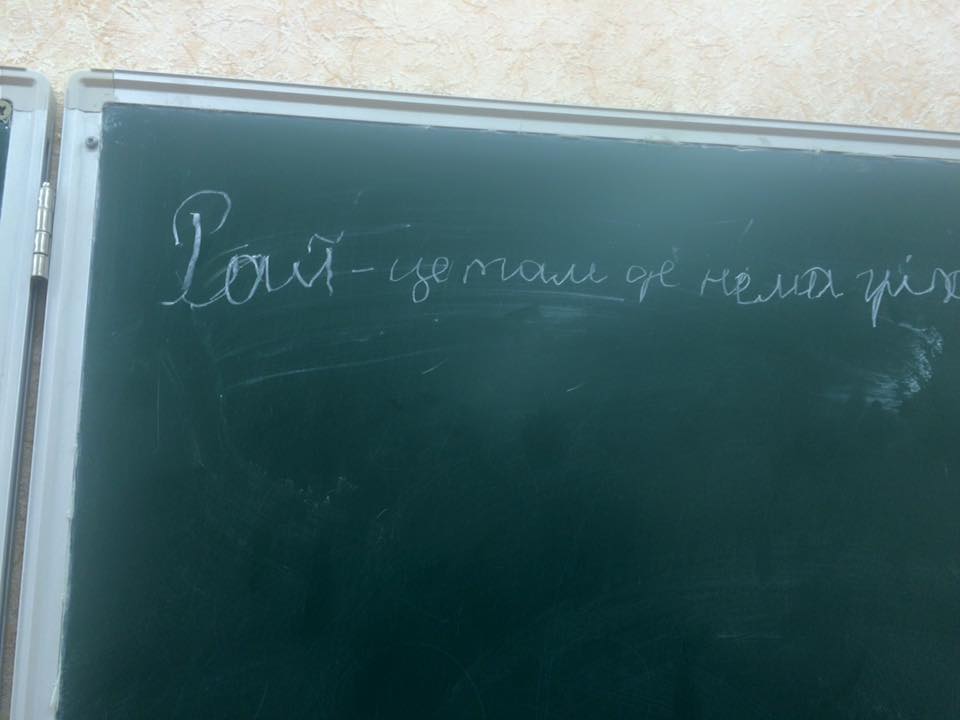 Рай - це там де нема гріх